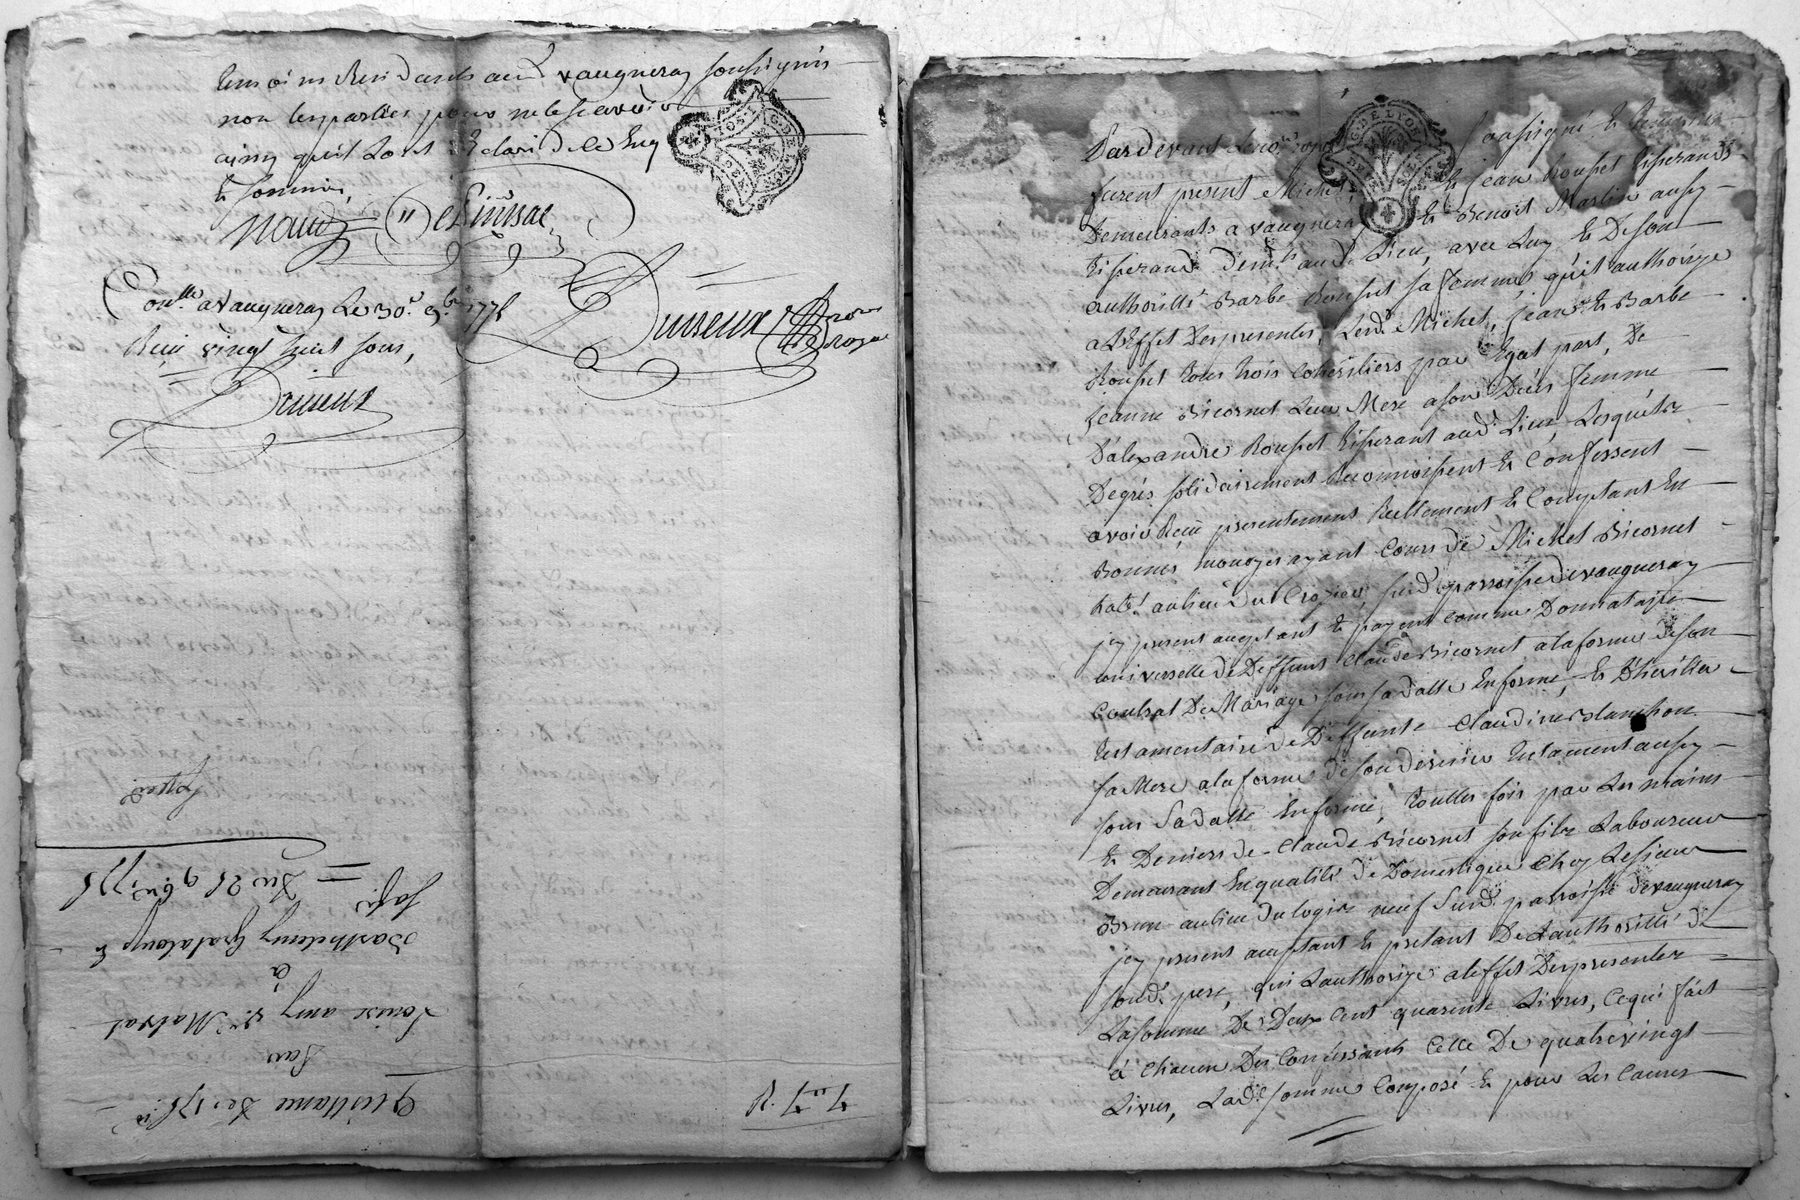 temoins Residants aud. vaugneray soussignés
non les parties pour ne le sçavoir
ainsy quil Lont declaré de ce Enq
& sommés
Con.lle a vaugneray Le 30.e 9.bre 177
Reçu vingt huit sous,
G. DE LYON
Duiseux
Duiseux
Quittance De 175.#
Par
Louise amy v.e Matrat
à
Barthelemy Grataloup &
sa fe.
Du 28 9bre 177
Expéd
G. DE LYON
Pardevant Le no.re royal soussigné & temoins
furent presents Michel & Jean Rousset tisserands
Demeurants a vaugneray & Benoit Martin aussy
tisserand dem.t aud. Lieu, avec Luy & De son
authoritté Barbe Rousset sa femme, qu'il authorize
a L'Effet Des presentes, Lesd. Michel, Jean & Barbe
Rousset tous trois Coheritiers par Egal part, De
Jeanne Bicornet Leur Mere a son Décés femme
D'alexandre Rousset tisserant aud. Lieu, Lesquels
De grés solidairement Reconnoissent & Confessent
avoir Reçu presentement Reellement & Comptant En
Bonnes monoyes ayant Cours de Michel Bicornet
hab.t au lieu du Crozier susd. parroisse de vaugneray
jcy present acceptant & payant comme Donnataire
universelle de Deffunt Claude Bicornet a la forme de son
Contrat De Mariage sous sa datte En forme, & D'heritier
testamentaire de Deffunte Claudine Blanchon
sa Mere a la forme de son dernier testament aussy
sous Sa datte En forme, touttes fois par Les mains
& Deniers de Claude Bicornet son fils Laboureur
Demeurant En qualité de Domestique Chez Le sieur
Brun au lieu du logis neuf Susd. parroisse de vaugneray
jcy present acceptant & pretant De Lauthoritté de
sond. pere, qui Lauthorize a leffet Des presentes
La somme De Deux Cent quarente Livres, Ce qui fait
à Chacun Des Confessants Celle De quatre vingt
Livres, Lad. somme Composé & pour Les Causes